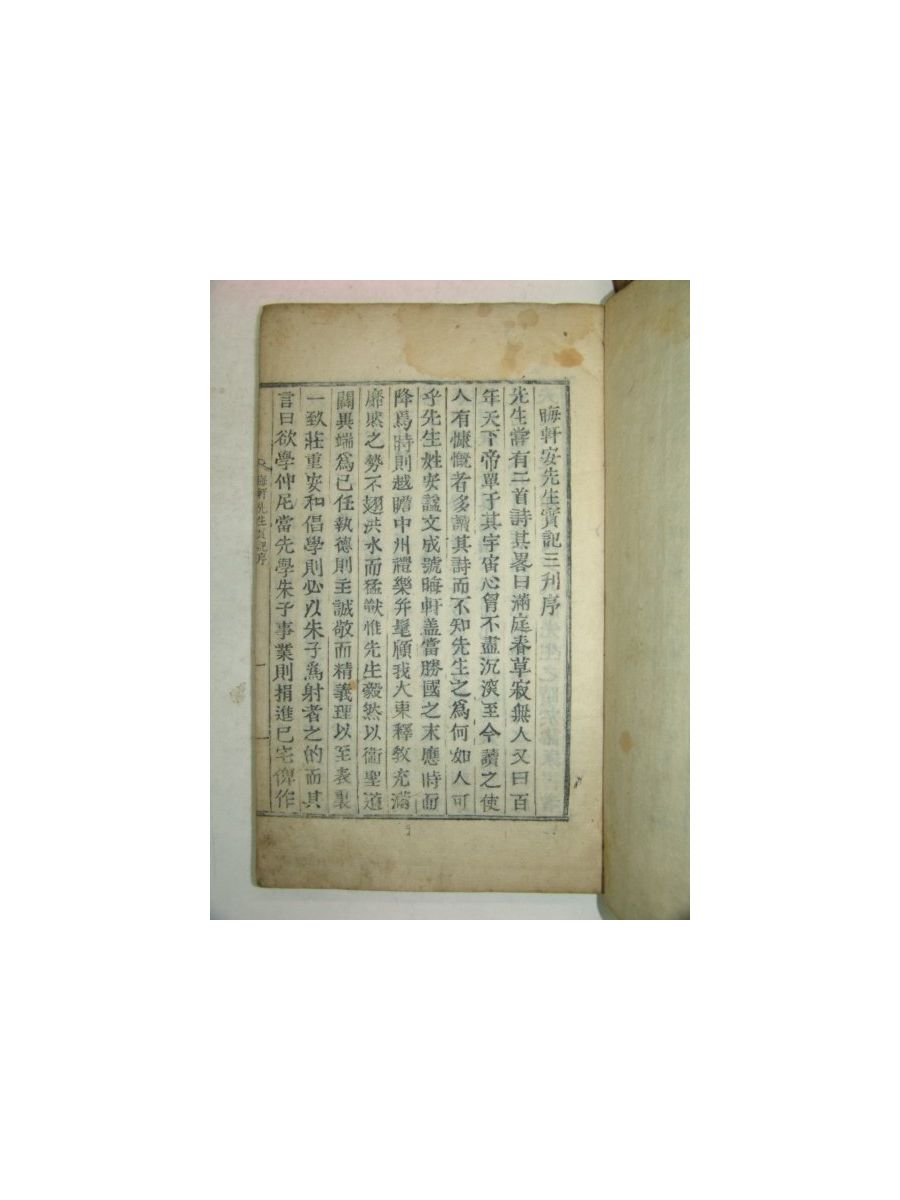 晦軒安先生實記三刋序
先生嘗有二首詩其畧曰滿庭春草寂無人又曰百
年天下帝單于其宇宙心胷不盡沉淚至今讀之使
人有慷慨者多讀其詩而不知先生之爲何如人可
乎先生姓安謚文成號晦軒盖當勝國之末應時而
降焉時則越瞻中州禮樂弁髦顧我大東釋敎充滿
靡然之勢不翅洪水而猛獸惟先生毅然以衞聖道
闢異端爲己任執德則主誠敬而精義理以至表裏
一致莊重安和倡學則必以朱子爲射者之的而其
言曰欲學仲尼當先學朱子事業則捐進已宅俾作
晦軒先生實記序 一